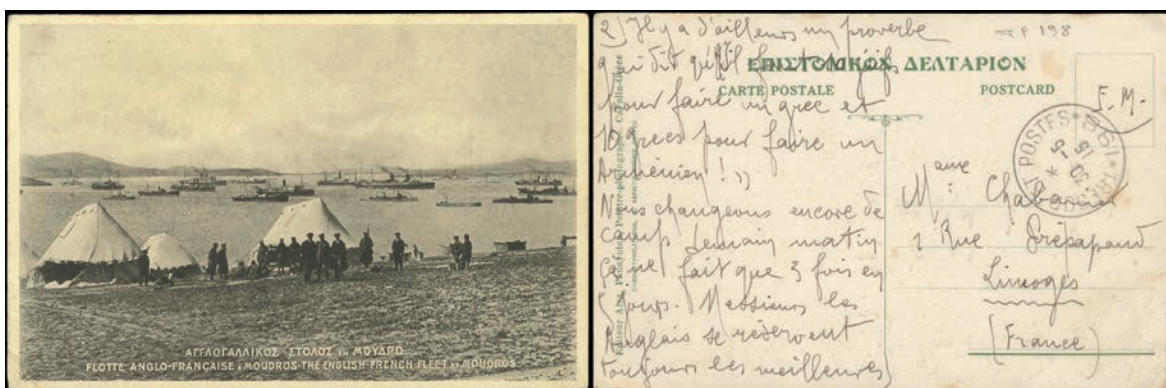 ΑΓΓΛΟΓΑΛΛΙΚΟΣ ΣΤΟΛΟΣ ΕΝ ΜΟΥΔΡΩ
FLOTTE ANGLO-FRANCAISE A MOUDROS-THE ENGLISH-FRENCH FLEET AT MOUDROS
2) Il y a d'ailleurs un proverbe
qui dit qu'il faut juifs
pour faire un grec et
10 grecs pour faire un
Arménien ! »
Nous changeons encore de
camp demain matin
Ça ne fait que 3 fois en
5 jours. Messieurs les
Anglais se réservent
toujours les meilleures
198
ΕΠΙΣΤΟΛΙΚΟΝ ΔΕΛΤΑΡΙΟΝ
CARTE POSTALE
POSTCARD
F. M.
POSTES
Mame Chabanier
1 Rue
Limoges
(France)